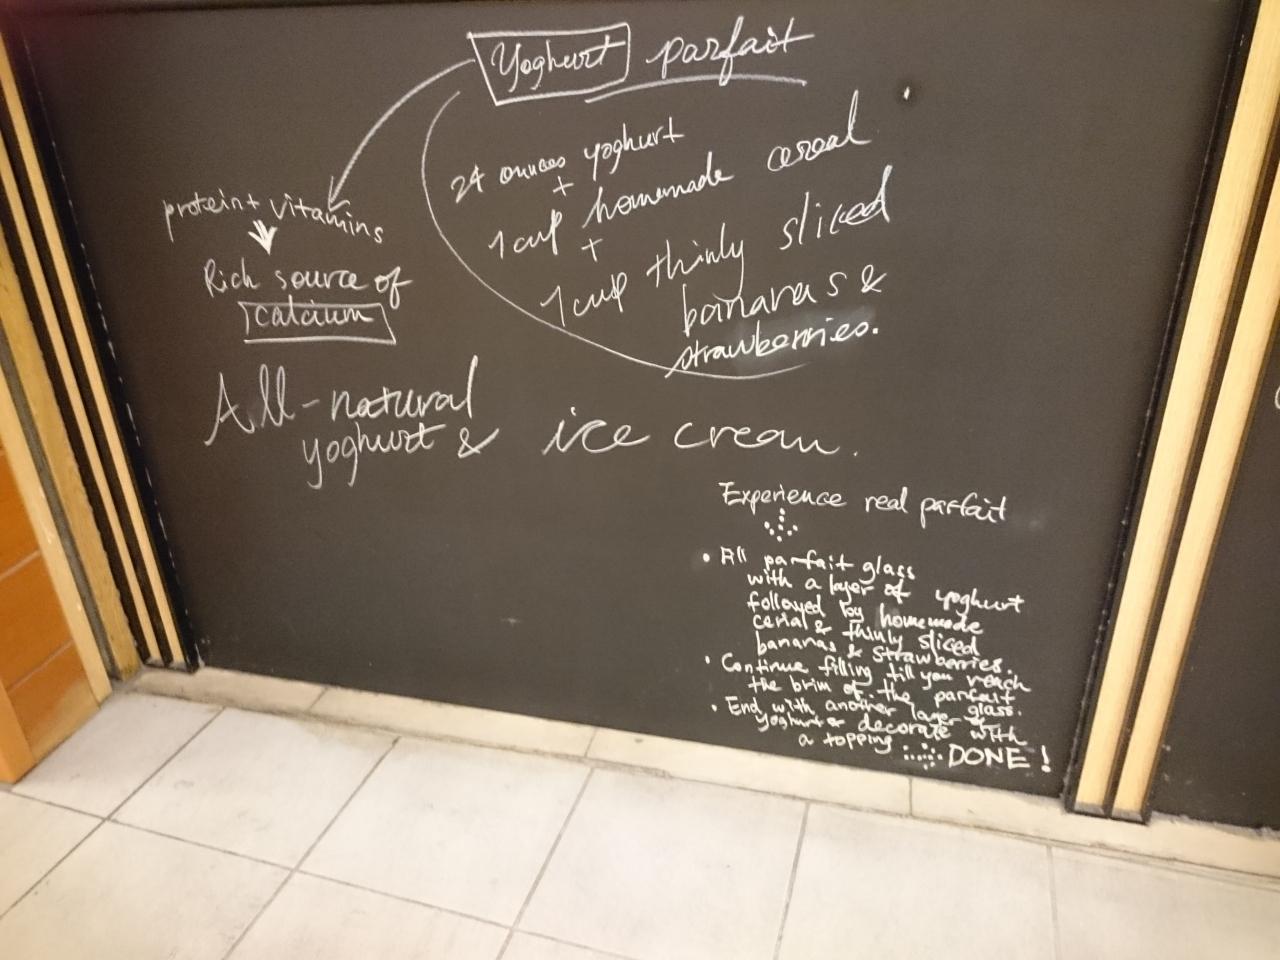 Yoghurt parfait
24 ounces yoghurt
+
1 cup homemade cereal
+
1 cup thinly sliced
bananas &
strawberries.
protein + vitamins
Rich source of
calcium
All-natural
yoghurt & ice cream.
Experience real parfait
• All parfait glass
with a layer of yoghurt
followed by homemade
cerial & thinly sliced
bananas & strawberries.
• Continue filling till you reach
the brim of the parfait
glass.
• End with another layer of
yoghurt & decorate with
a topping DONE!